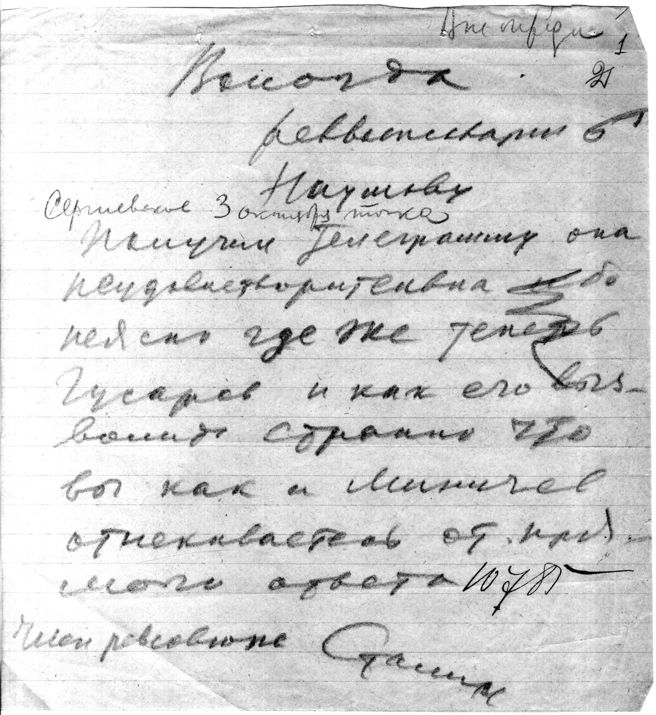 Вне очереди
1
Вологда
21
реввоенсоварм 6
Наумову
Сергиевское 3 октября точка
Получил Телеграмму она
неудовлетворительна ибо
неясно где же теперь
Гусаров и как его выз-
волить странно что
вы как и Миничев
отнекиваетесь от пря-
мого ответа 10785
Член ревсовюжа Сталин